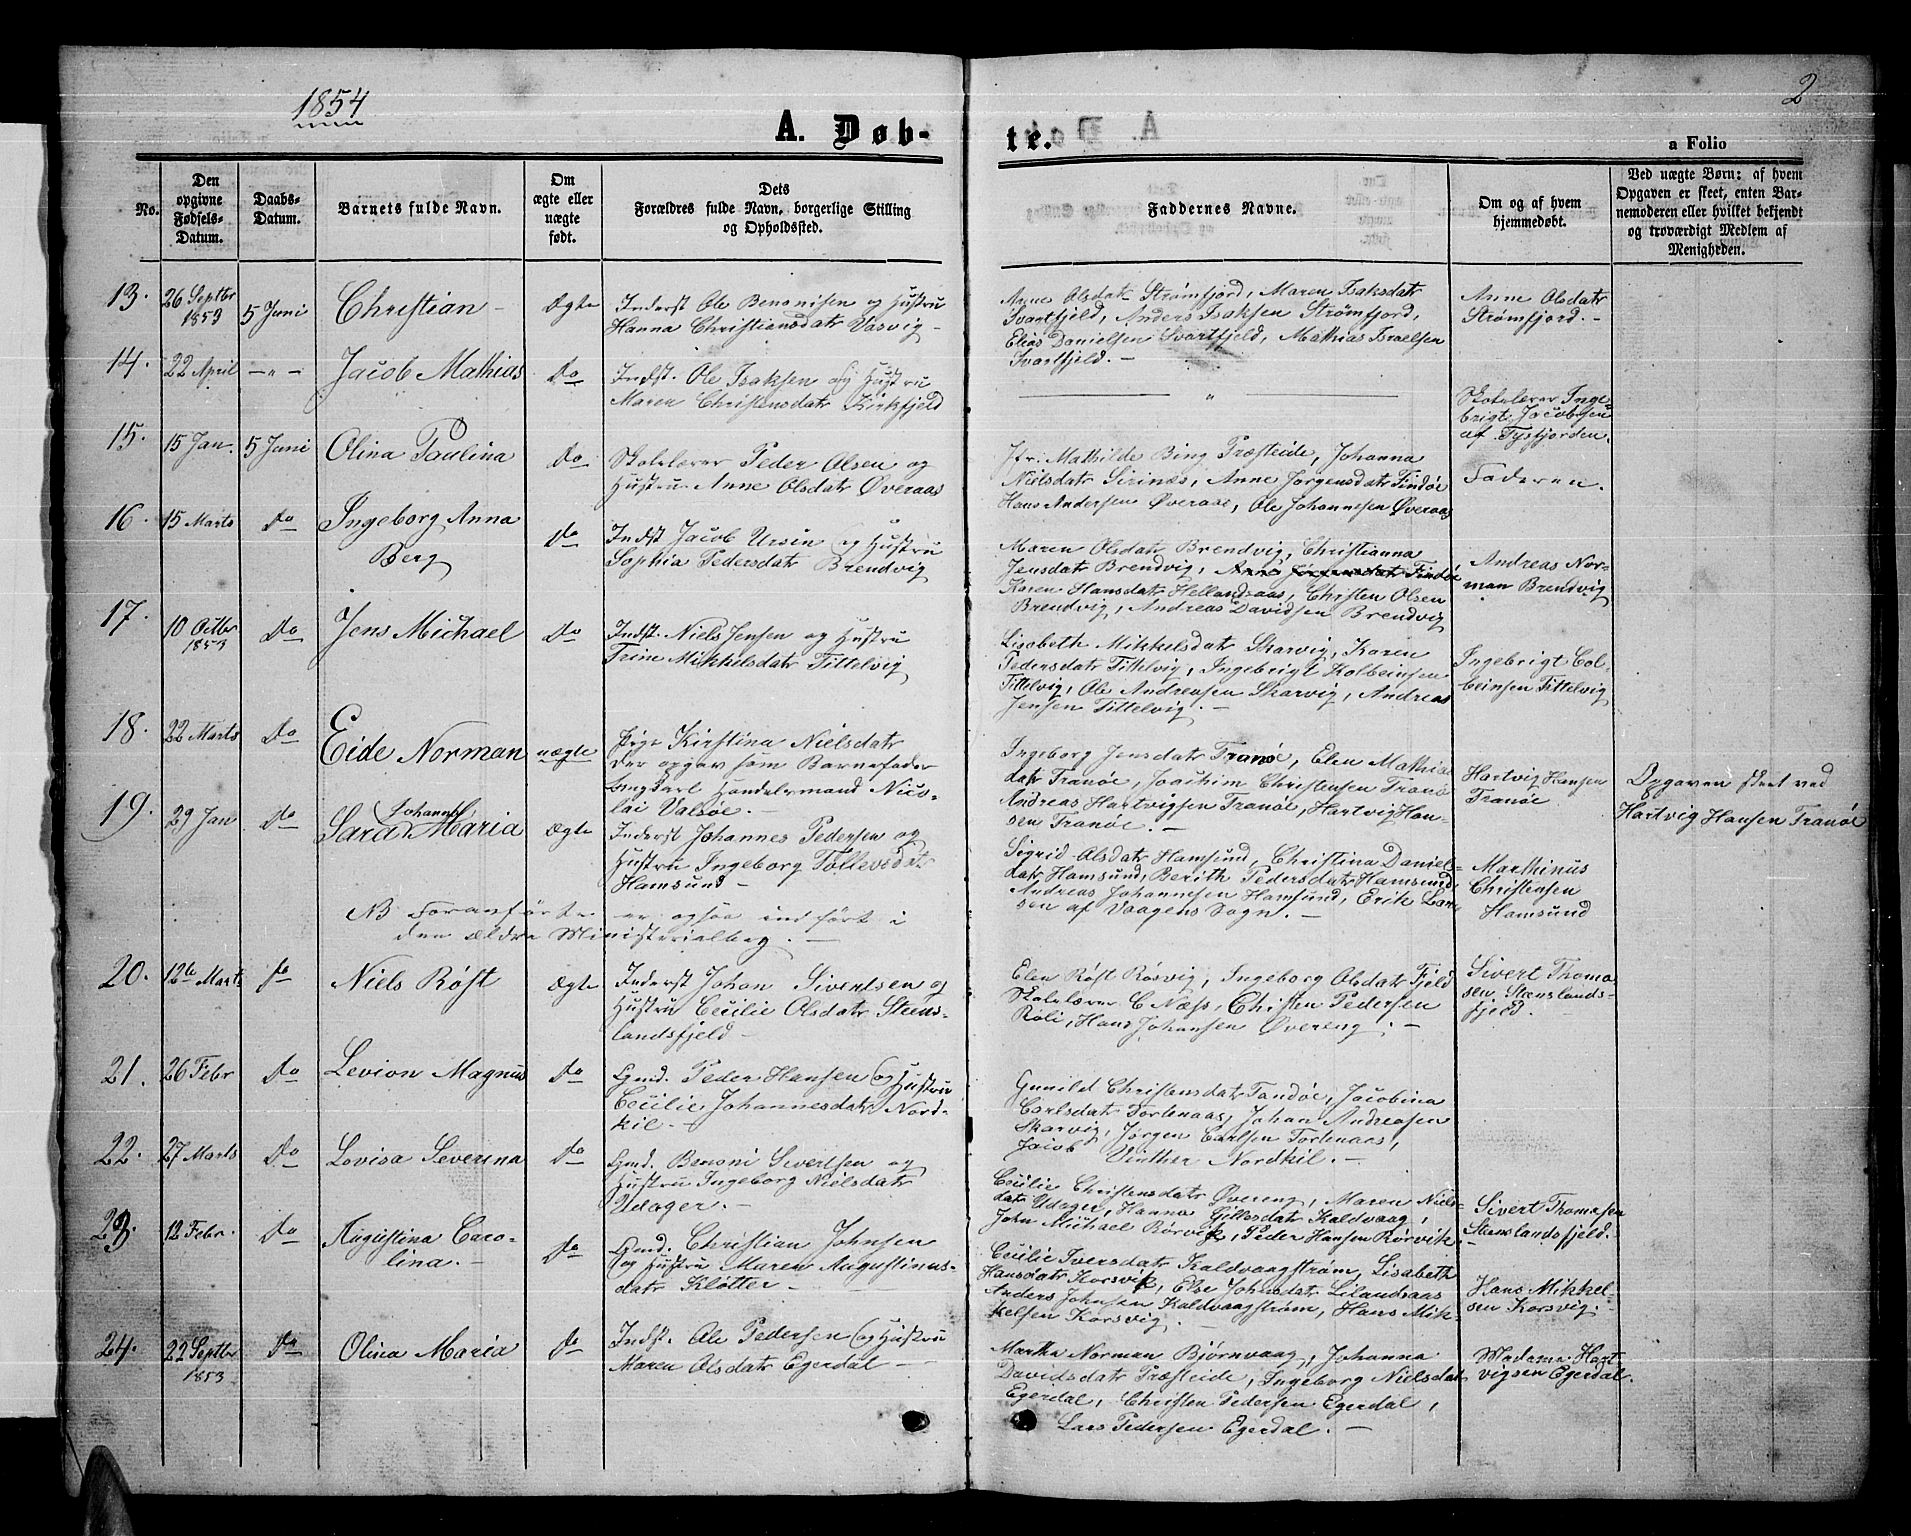 1854
2
A. Døb-
te.
a Folio
No.
Den
opgivne
Fødsels-
Datum.
Daabs-
Datum.
Barnets fulde Navn.
Om
ægte eller
uægte
født.
Dets
Forældres fulde Navn, borgerlige Stilling
og Opholdssted.
Faddernes Navne.
Om og af hvem
hjemmedøbt.
Ved uægte Børn: af hvem
Opgaven er skeet, enten Bar-
nemoderen eller hvilket bekjendt
og troværdigt Medlem af
Menigheden.
13.
26 Septbr
1853
5 Juni
Christian -
Ægte
Inderst Ole Benonisen og Hustru
Hanna Christiansdatr Vasvig -
Anne Olsdatr Strømfjord, Maren Isaksdatr
Svartfjeld, Anders Isaksen Strømfjord,
Elias Danielsen Svartfjeld, Mathias Israelsen
Svartfjeld. -
Anne Olsdatr
Strømfjord. -
14.
22 April
-"-
Jacob Mathias
Do
Indst. Ole Isaksen og Hustru
Maren Christensdatr Kirkfjeld
"
Skolelærer Inge-
brigt Jacobsen
af Tysfjorden.
15.
15 Jan.
5 Juni
Olina Paulina
Do
Skolelærer Peder Olsen og
Hustru Anne Olsdatr Øveraas
Jfr. Mathilde Bing Præsteide, Johanna
Nielsdatr Sirinæs, Anne Jørgensdatr Findøe
Hans Andersen Øveraas, Ole Johannesen Øveraas
Faderen.
16.
15 Marts
Do
Ingeborg Anna
Berg
Do
Indst Jacob Ursin og Hustru
Sophia Pedersdatr Brendvig
Maren Olsdatr Brendvig, Christianna
Jensdatr Brendvig, Anne Jørgensdatr Findøe
Karen Hansdatr Hellandsaas, Christen Olsen
Brendvig, Andreas Davidsen Brendvig
Andreas Nor-
man Brendvig
17.
10 Octbr
1853
Do
Jens Michael
Do
Indst. Niels Jensen og Hustru
Trine Mikkelsdatr Tittelvig
Lisabeth Mikkelsdatr Skarvig, Karen
Pedersdatr Tittelvig, Ingebrigt Kolbeinsen
Tittelvig, Ole Andreasen Skarvig, Andreas
Jensen Tittelvig. -
Ingebrigt Col-
beinsen Tittelvig
18.
22 Marts
Do
Eide Norman
uægte
Pige Kirstina Nielsdatr
der opgav som Barnefader
Ungkarl Handelsmand Nico-
lai Valsøe. -
Ingeborg Jensdatr Tranøe, Elen Mathias
datr Tranøe, Joachim Christensen Tranøe
Andreas Hartvigsen Tranøe, Hartvig Han-
sen Tranøe. -
Hartvig Hansen
Tranøe
Opgaven skeet ved
Hartvig Hansen Tranøe
19.
29 Jan
Do
Johanna
Sara Maria
Ægte
Inderst Johannes Pedersen og
Hustru Ingeborg Tollevsdatr
Hamsund -
Sigrid Olsdatr Hamsund, Christina Daniel-
datr Hamsund, Berith Pedersdatr Hamsund
Andreas Johannesen Hamsund, Erik Lar-
sen af Vaagens Sogn. -
Marthinus
Christensen
Hamsund
NB Foranførte er ogsaa indført i
den ældre Ministerialbog. -
20.
12te Marts
Do
Niels Røst
Ægte
Inderst Johan Sivertsen og
Hustru Cecilie Olsdatr Steens-
landsfjeld -
Elen Røst Røsvig, Ingeborg Olsdatr Fjeld
Skolelærer C Næss, Christen Pedersen
Røli, Hans Johansen Øvereng. -
Sivert Thoma
sen Steenslands-
fjeld.
21.
26 Febr
Do
Levion Magnus
Do
Gmd. Peder Hansen og Hustru
Cecilie Johannesdatr Nord-
kil. -
Gunild Christensdatr Tandøe, Jacobina
Carlsdatr Tortenaas, Johan Andreasen
Skarvig, Jørgen Carlsen Tortenaas,
Jacob Vinther Nordkil. -
22.
27 Marts
Do
Lovisa Severina
Do
Gmd. Benoni Sivertsen og
Hustru Ingeborg Nielsdatr
Udager. -
Cecilie Christensdatr Øvereng, Maren Niels-
datr Udager, Hanna Gillesdatr Kaldvaag,
John Michael Rørvik, Peder Hansen Rørvik
Sivert Thomasen
Steenslandsfjeld.
23.
12 Febr.
Do
Augustina Caro-
lina. -
Do
Gmd. Christian Johnsen
og Hustru Maren Augustinus-
datr Kløtter -
Cecilie Iversdatr Kaldvaagstrøm, Lisabeth
Hansdatr Korsvik, Else Johnsdatr Lilandsaas
Anders Johnsen Kaldvaagstrøm, Hans Mik-
kelsen Korsvig. -
Hans Mikkel-
sen Korsvig.
24.
22 Septbr
1853
Do
Olina Maria
Do
Indst. Ole Pedersen og Hustru
Maren Olsdatr Egerdal -
Martha Norman Bjørnvaag, Johanna
Davidsdatr Præsteide, Ingeborg Nielsdatr
Egerdal, Christen Pedersen Egerdal,
Lars Pedersen Egerdal. -
Madame Hart-
vigsen Egerdal.